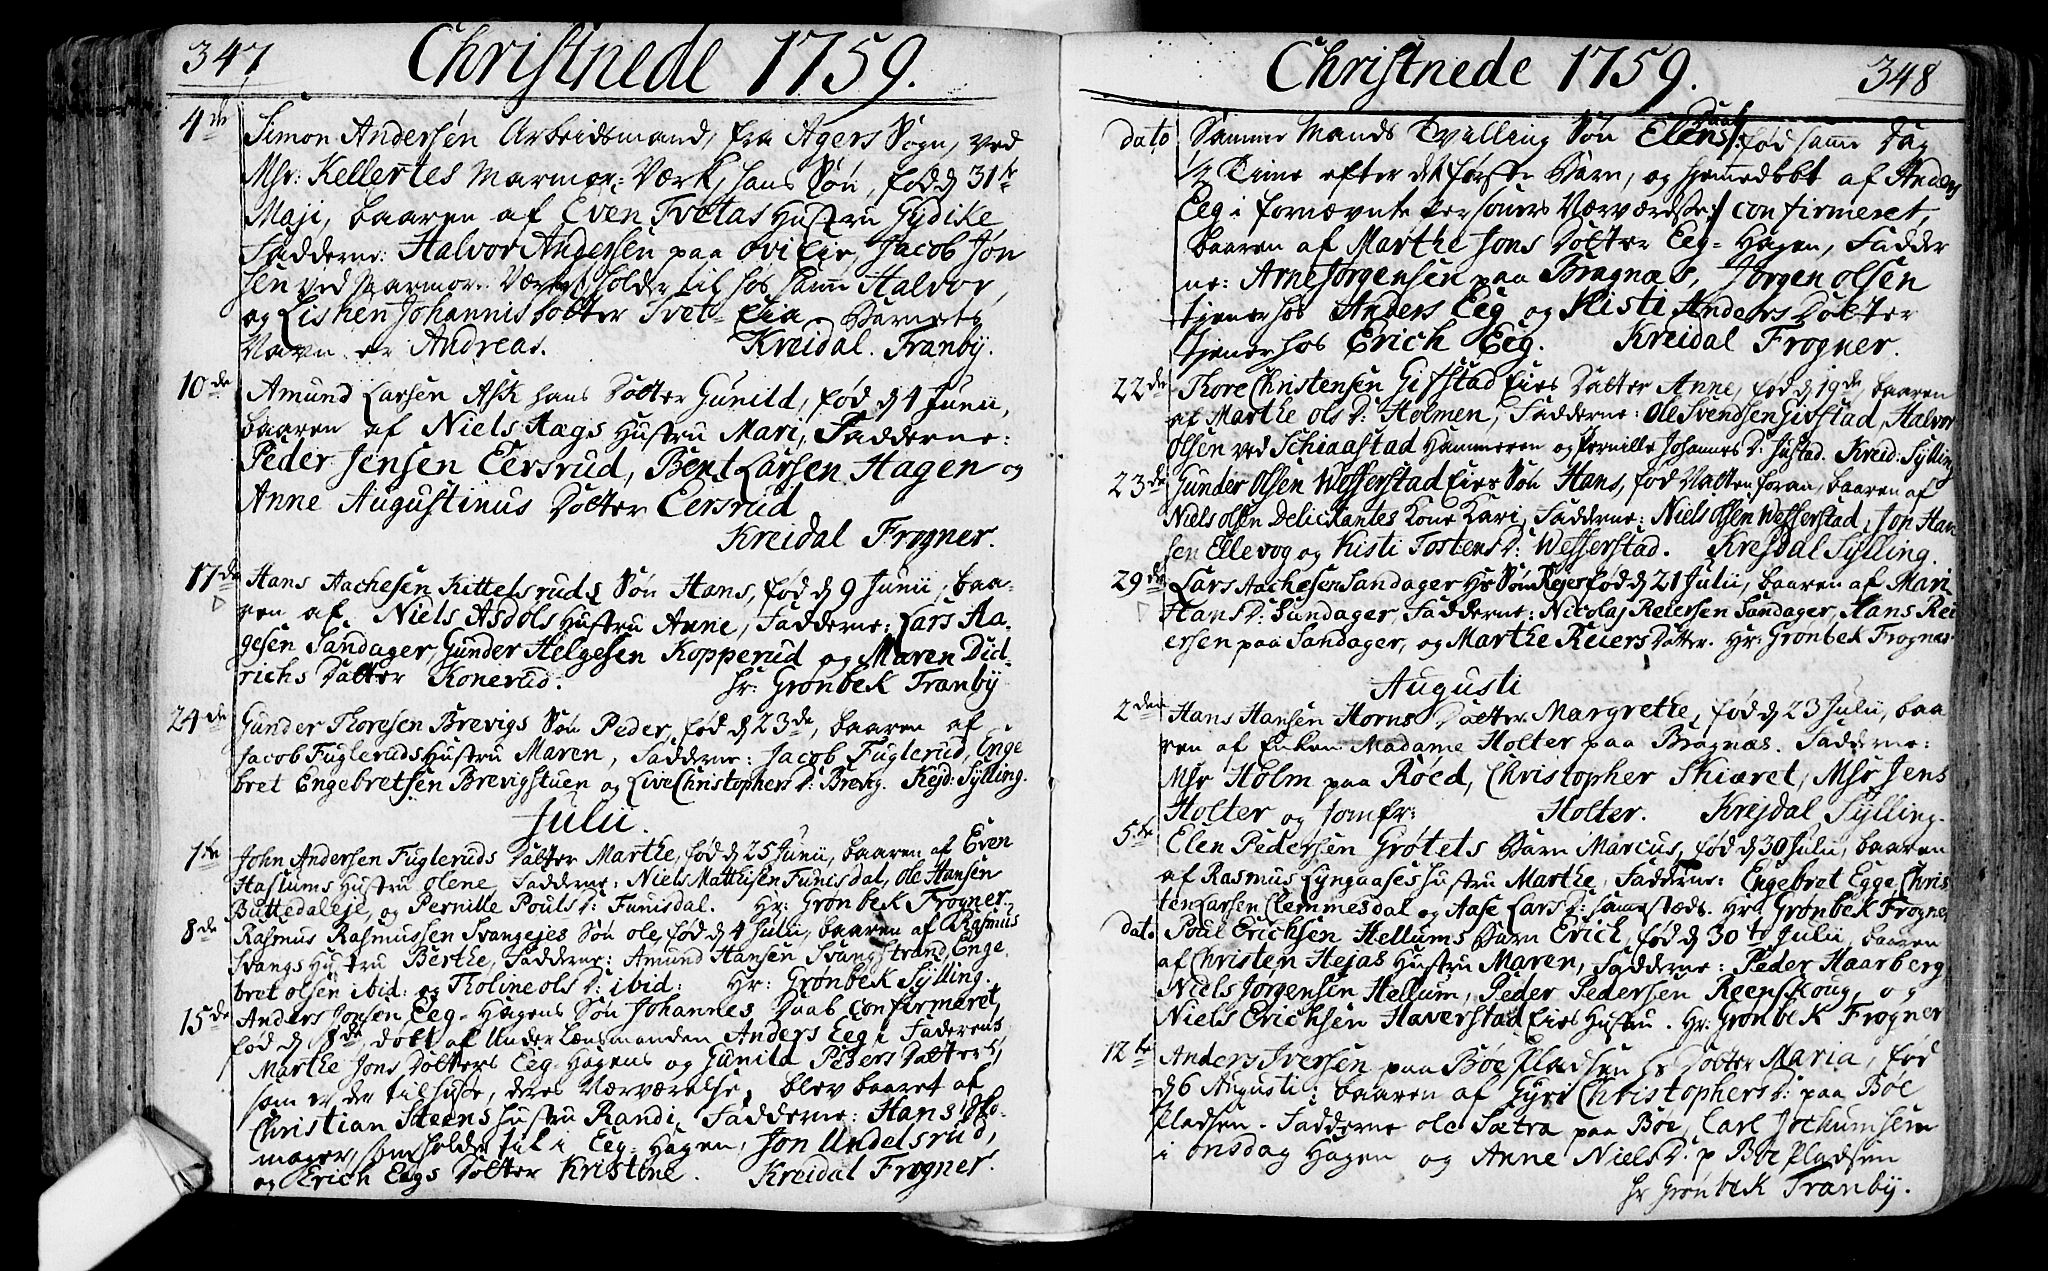 347
Christnede 1759.
4de Simon Andersen Arbeidsmand, fra Agers Sogn, ved
Msr: Kellertes Marmor-Værk, hans Søn, fød d 31te
Maji, baaren af Even Tvetas Hustru Gydike
Fadderne: Halvor Andersen paa ovi Eie, Jacob Jon
sen ved Marmor-Værket, holder til hos samme Halvor,
og Lisken Johannis Dotter Tvet-Eia Barnets
Navn er Andreas. Kreidal. Tranby.
10de Amund Larsen Ask hans Dotter Gunild, fød d 4 Junii,
baaren af Niels Hægs Hustru Mari, Fadderne:
Peder Jensen Eersrud, Bent Larsen Hagen og
Anne Augustinus Dotter Eersrud
Kreidal Frogner.
17de Hans Aachesen Kittelsruds Søn Hans, fød d 9 Junii, baa-
ren af Niels Asdols Hustru Anne, Fadderne: Lars Aa-
gesen Sandager, Gunder Helgesen Kopperud og Maren Did-
richs Datter Konerud. Hr: Grønbek Tranby
24de Gunder Thoresen Brevigs Søn Peder, fød d 23de, baaren af
Jacob Fugleruds Hustru Maren, Fadderne: Jacob Fuglerud, Enge
bret Engebretsen Brevigstuen og Live Christophers D: Brevig. Krejd: Sylling.
Julii.
1te John Andersen Fugleruds Datter Marthe, fød d 25 Junii, baaren af Even
Haslums Hustru Olene, Fadderne: Niels Mathisen Funisdal, Ole Hansen
Buttedaleje, og Pernille Pouls D: Funisdal. Hr: Grønbek Frogner.
8de Rasmus Rasmussen Svangejes Søn Ole, fød d 4 Julii, baaren af Rasmus
Svangs Hustru Berthe, Fadderne: Amund Hansen Svangstrand, Enge
bret Olsen ibid: og Tholine Ols D: ibid: Hr: Grønbek Sylling.
15de Anders Jonsen Eeg-Hagens Søn Johannes Daab Confirmeret,
fød d 8de, døbt af Under Lænsmanden Anders Eeg i Faderens
Marthe Jons Dotters Eeg-Hagens og Gunild Peders Datters,
som er der til huse, deres Nærværelse, blev baaret af
Christian Steens Hustru Randi, Fadderne: Hans Sko-
mager, som holder til i Eeg-Hagen, Jon Undelsrud,
og Erich Eegs Dotter Kristine. Kreidal Frogner.
Christnede 1759. 348
dato Samme Mands Tvilling Søn Elens Daab /: fød samme Dag
1/2 Time efter det første Barn, og hjemedøbt af Anders
Eeg i fornævnte Personers Nærværelse :/ confirmeret,
baaren af Marthe Jons Dotter Eeg-Hagen, Fadder
ne: Arne Jørgensen paa Bragnæs, Jørgen Olsen
tjener hos Anders Eeg og Kisti Anders Dotter
tjener hos Erich Eeg. Kreidal Frogner.
22de Thore Christensen Gifstad Eies Datter Anne, fød d 19de, baaren
af Marthe Ols D: Holmen, Fadderne: Ole Svendsen Gifstad, Halvor
Olsen ved Schiaastad Hammeren og Pernille Johannes D: Justad. Kreid: Sylling
23de Gunder Olsen Wefferstad Eies Søn Hans, fød Natten foran, baaren af
Niels Olsen Delickantes Kone Kari, Fadderne: Niels Olsen Wefferstad, Jon Han
sen Ellevog og Kisti Tostens D: Wefferstad. Krejdal Sylling.
29de Lars Aachesen Sandager Hs Søn Rejer fød d 21 Julii, baaren af Mari
Hans D: Sandager, Fadderne: Nicolaj Reiersen Sandager, Hans Rei
ersen paa Sandager, og Marthe Reiers Datter. Hr: Grønbek Frogner
Augusti
2den Hans Hansen Horns Datter Margrethe, fød d 23 Julii, baa
ren af Enken Madame Holter paa Bragnæs. Fadderne:
Msr Holm paa Röed, Christopher Skiæret, Msr Jens
Holter og Jomfr: Holter. Krejdal Sylling.
5te Elen Pedersen Grøtets Barn Marcus, fød d 30 Julii, baaren
af Rasmus Lyngaases Hustru Marthe, Fadderne: Engebret Egge, Chris
ten Larsen Clemmesdal og Aase Lars D: sammestæds. Hr: Grønbek Frogner
dato Poul Erichsen Hellums Barn Erich, fød d 30te Julii, baaren
af Christen Hejas Hustru Maren, Fadderne: Peder Haarberg
Niels Jørgensen Hellum, Peder Pedersen Reenskoug, og
Niels Erichsen Haverstad Eies Hustru. Hr: Grønbek Frogner
12te Anders Iversen paa Böe Pladsen Hs Dotter Maria, fød
d 6 Augusti, baaren af Gyri Christophers D: paa Böe
Pladsen. Fadderne Ole Sætra paa Böe, Carl Jochumsen
i Onsdag Hagen og Anne Niels D: p Böe Pladsen
Hr Grønbek Tranby.